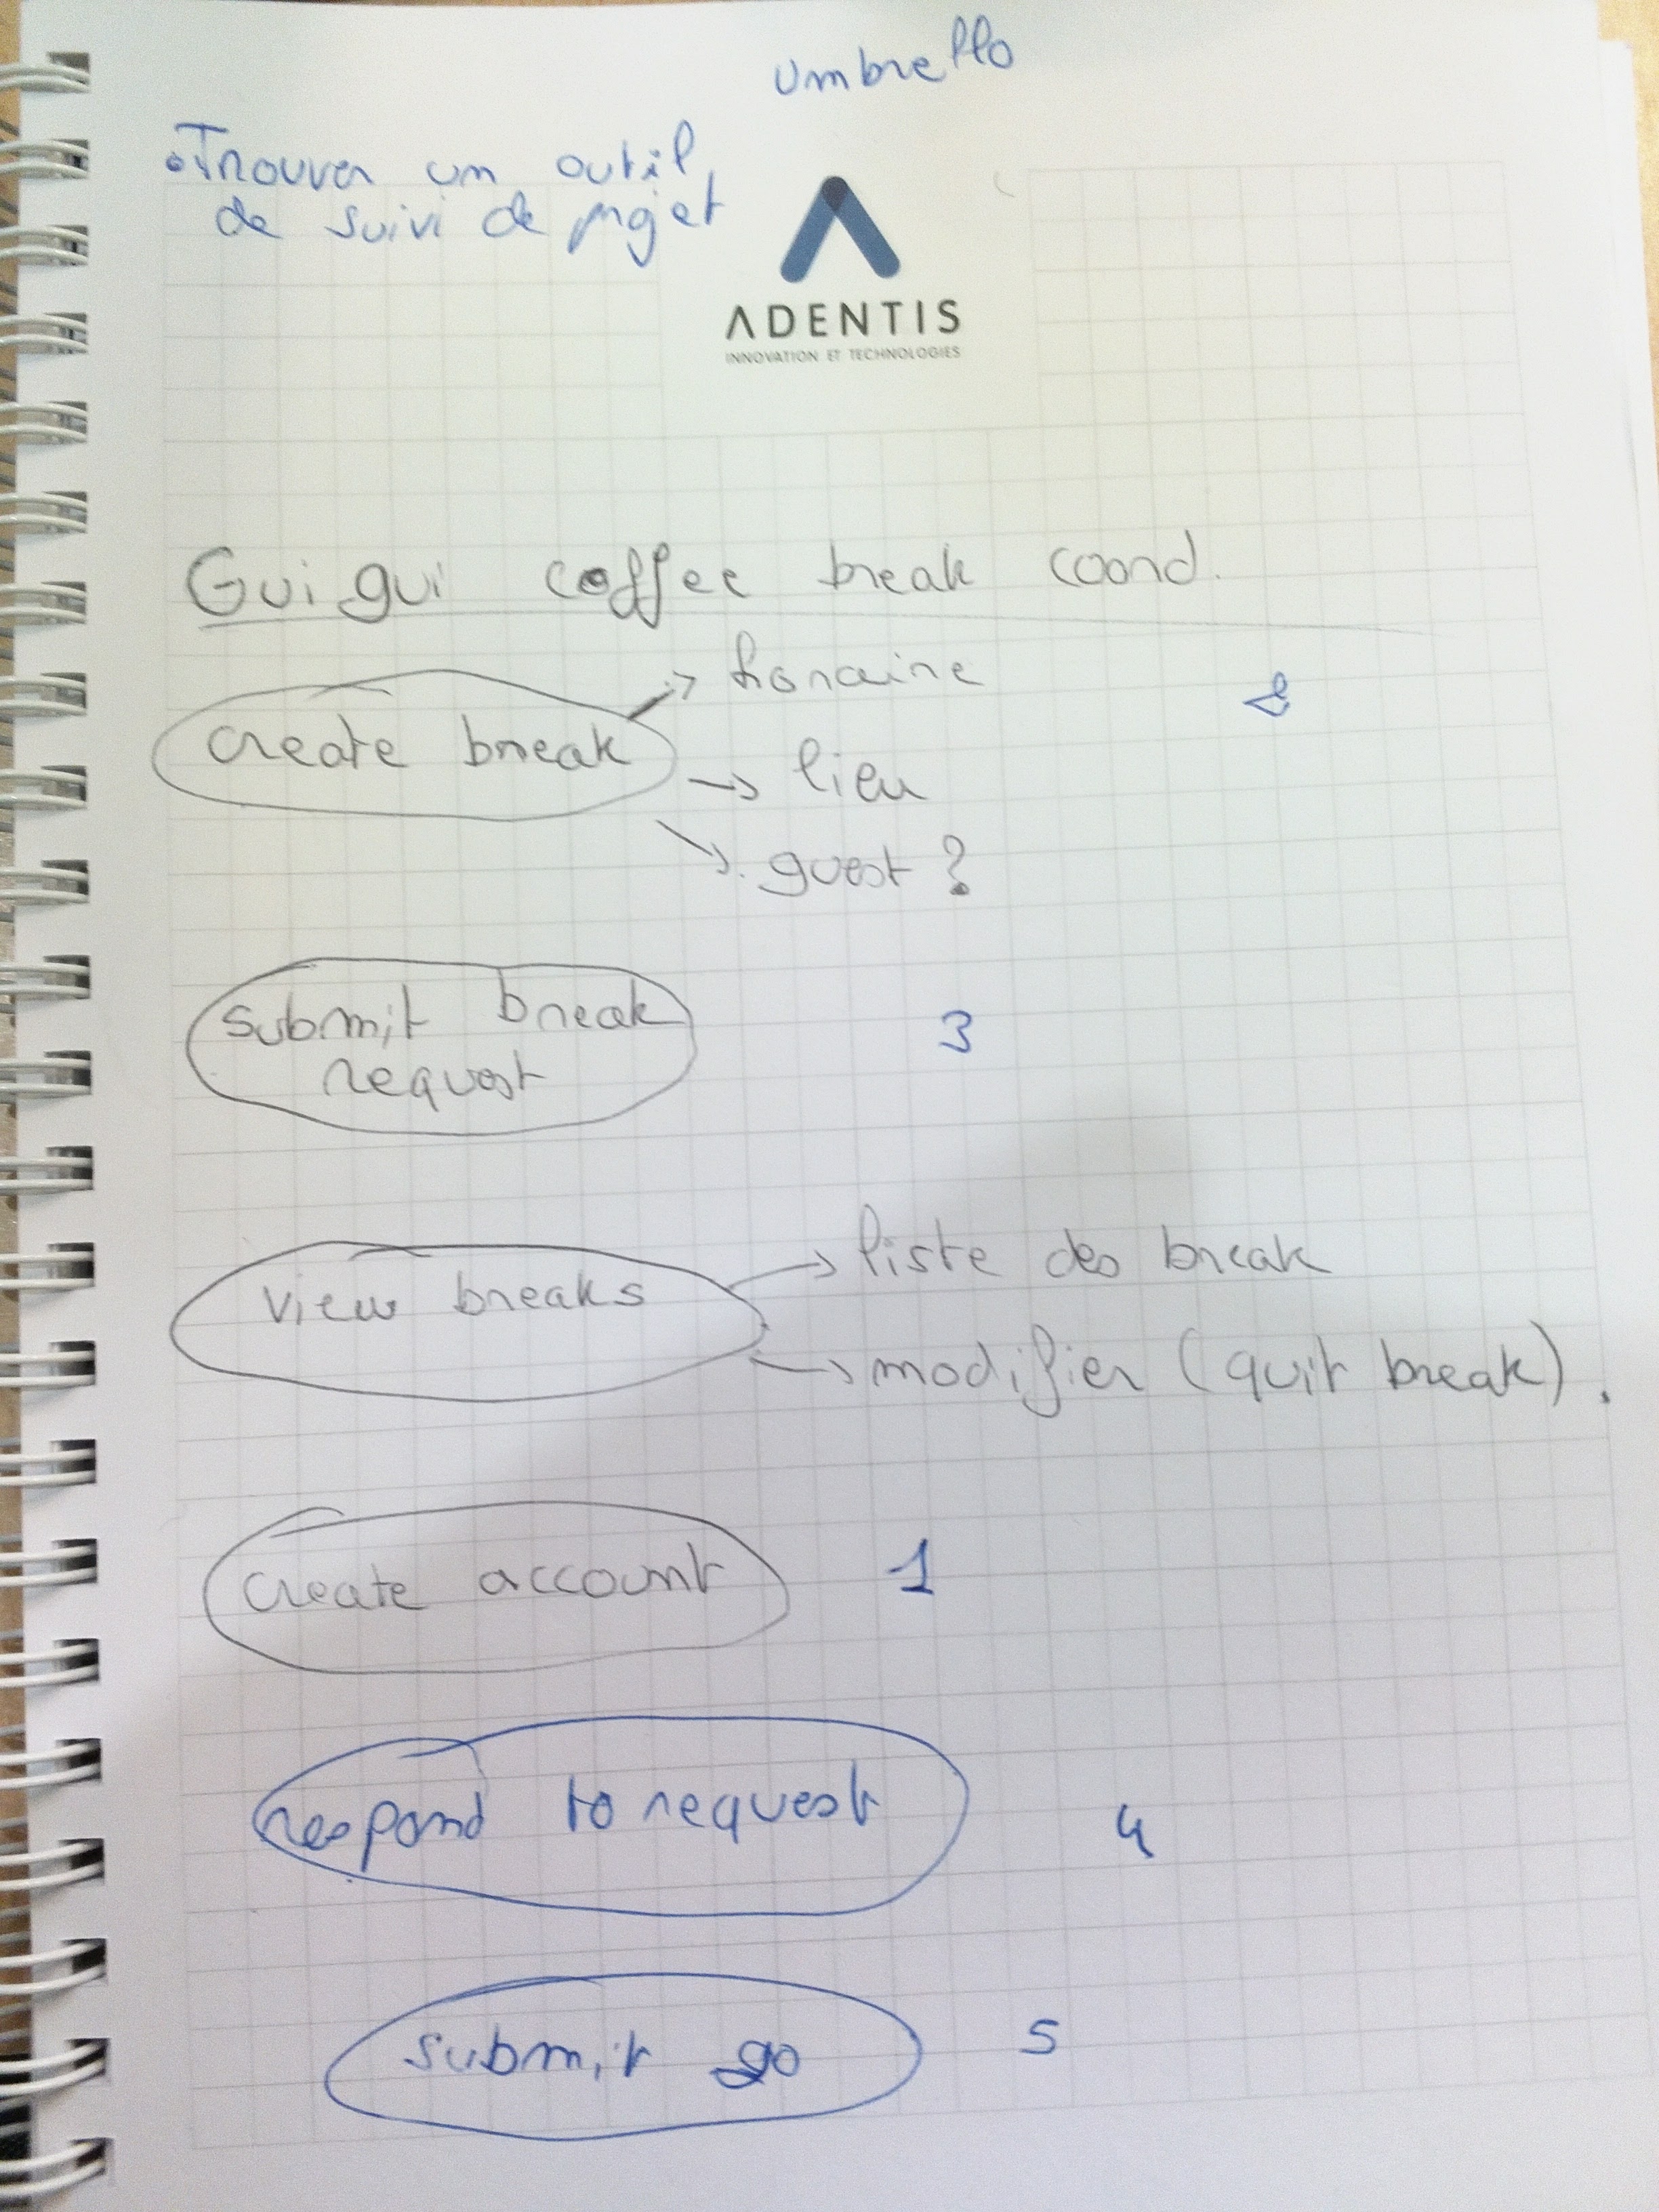 Umbrello
•Trouver un outil
de suivi de projet
ADENTIS
INNOVATION ET TECHNOLOGIES
Guigui coffee break coord.
→ horaire
2
create break
→ lieu
→ guest ?
submit break
request
3
→ liste des break
view breaks
→ modifier (quit break).
create account 1
respond to request 4
submit go 5